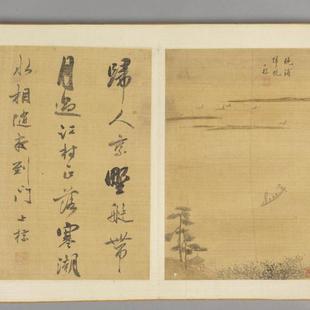 歸人乘野艇帶
月過江村正落寒潮
水相隨夜到門 士標